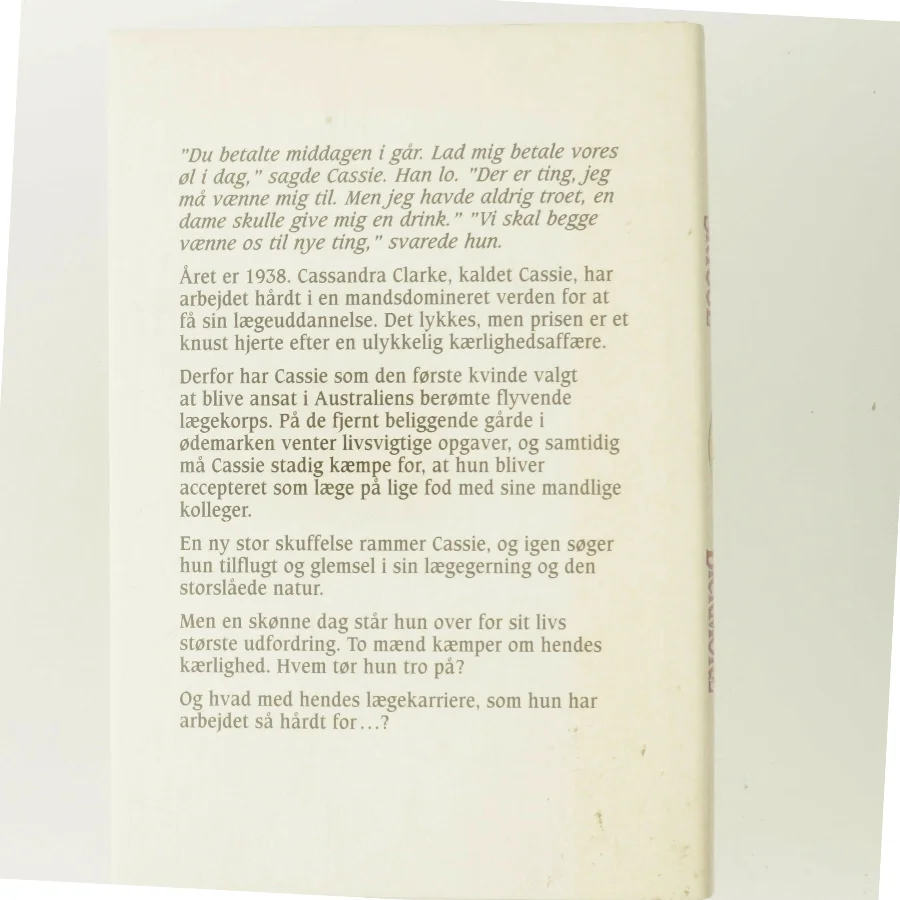 "Du betalte middagen i går. Lad mig betale vores
øl i dag," sagde Cassie. Han lo. "Der er ting, jeg
må vænne mig til. Men jeg havde aldrig troet, en
dame skulle give mig en drink." "Vi skal begge
vænne os til nye ting," svarede hun.
Året er 1938. Cassandra Clarke, kaldet Cassie, har
arbejdet hårdt i en mandsdomineret verden for at
få sin lægeuddannelse. Det lykkes, men prisen er et
knust hjerte efter en ulykkelig kærlighedsaffære.
Derfor har Cassie som den første kvinde valgt
at blive ansat i Australiens berømte flyvende
lægekorps. På de fjernt beliggende gårde i
ødemarken venter livsvigtige opgaver, og samtidig
må Cassie stadig kæmpe for, at hun bliver
accepteret som læge på lige fod med sine mandlige
kolleger.
En ny stor skuffelse rammer Cassie, og igen søger
hun tilflugt og glemsel i sin lægegerning og den
storslåede natur.
Men en skønne dag står hun over for sit livs
største udfordring. To mænd kæmper om hendes
kærlighed. Hvem tør hun tro på?
Og hvad med hendes lægekarriere, som hun har
arbejdet så hårdt for...?